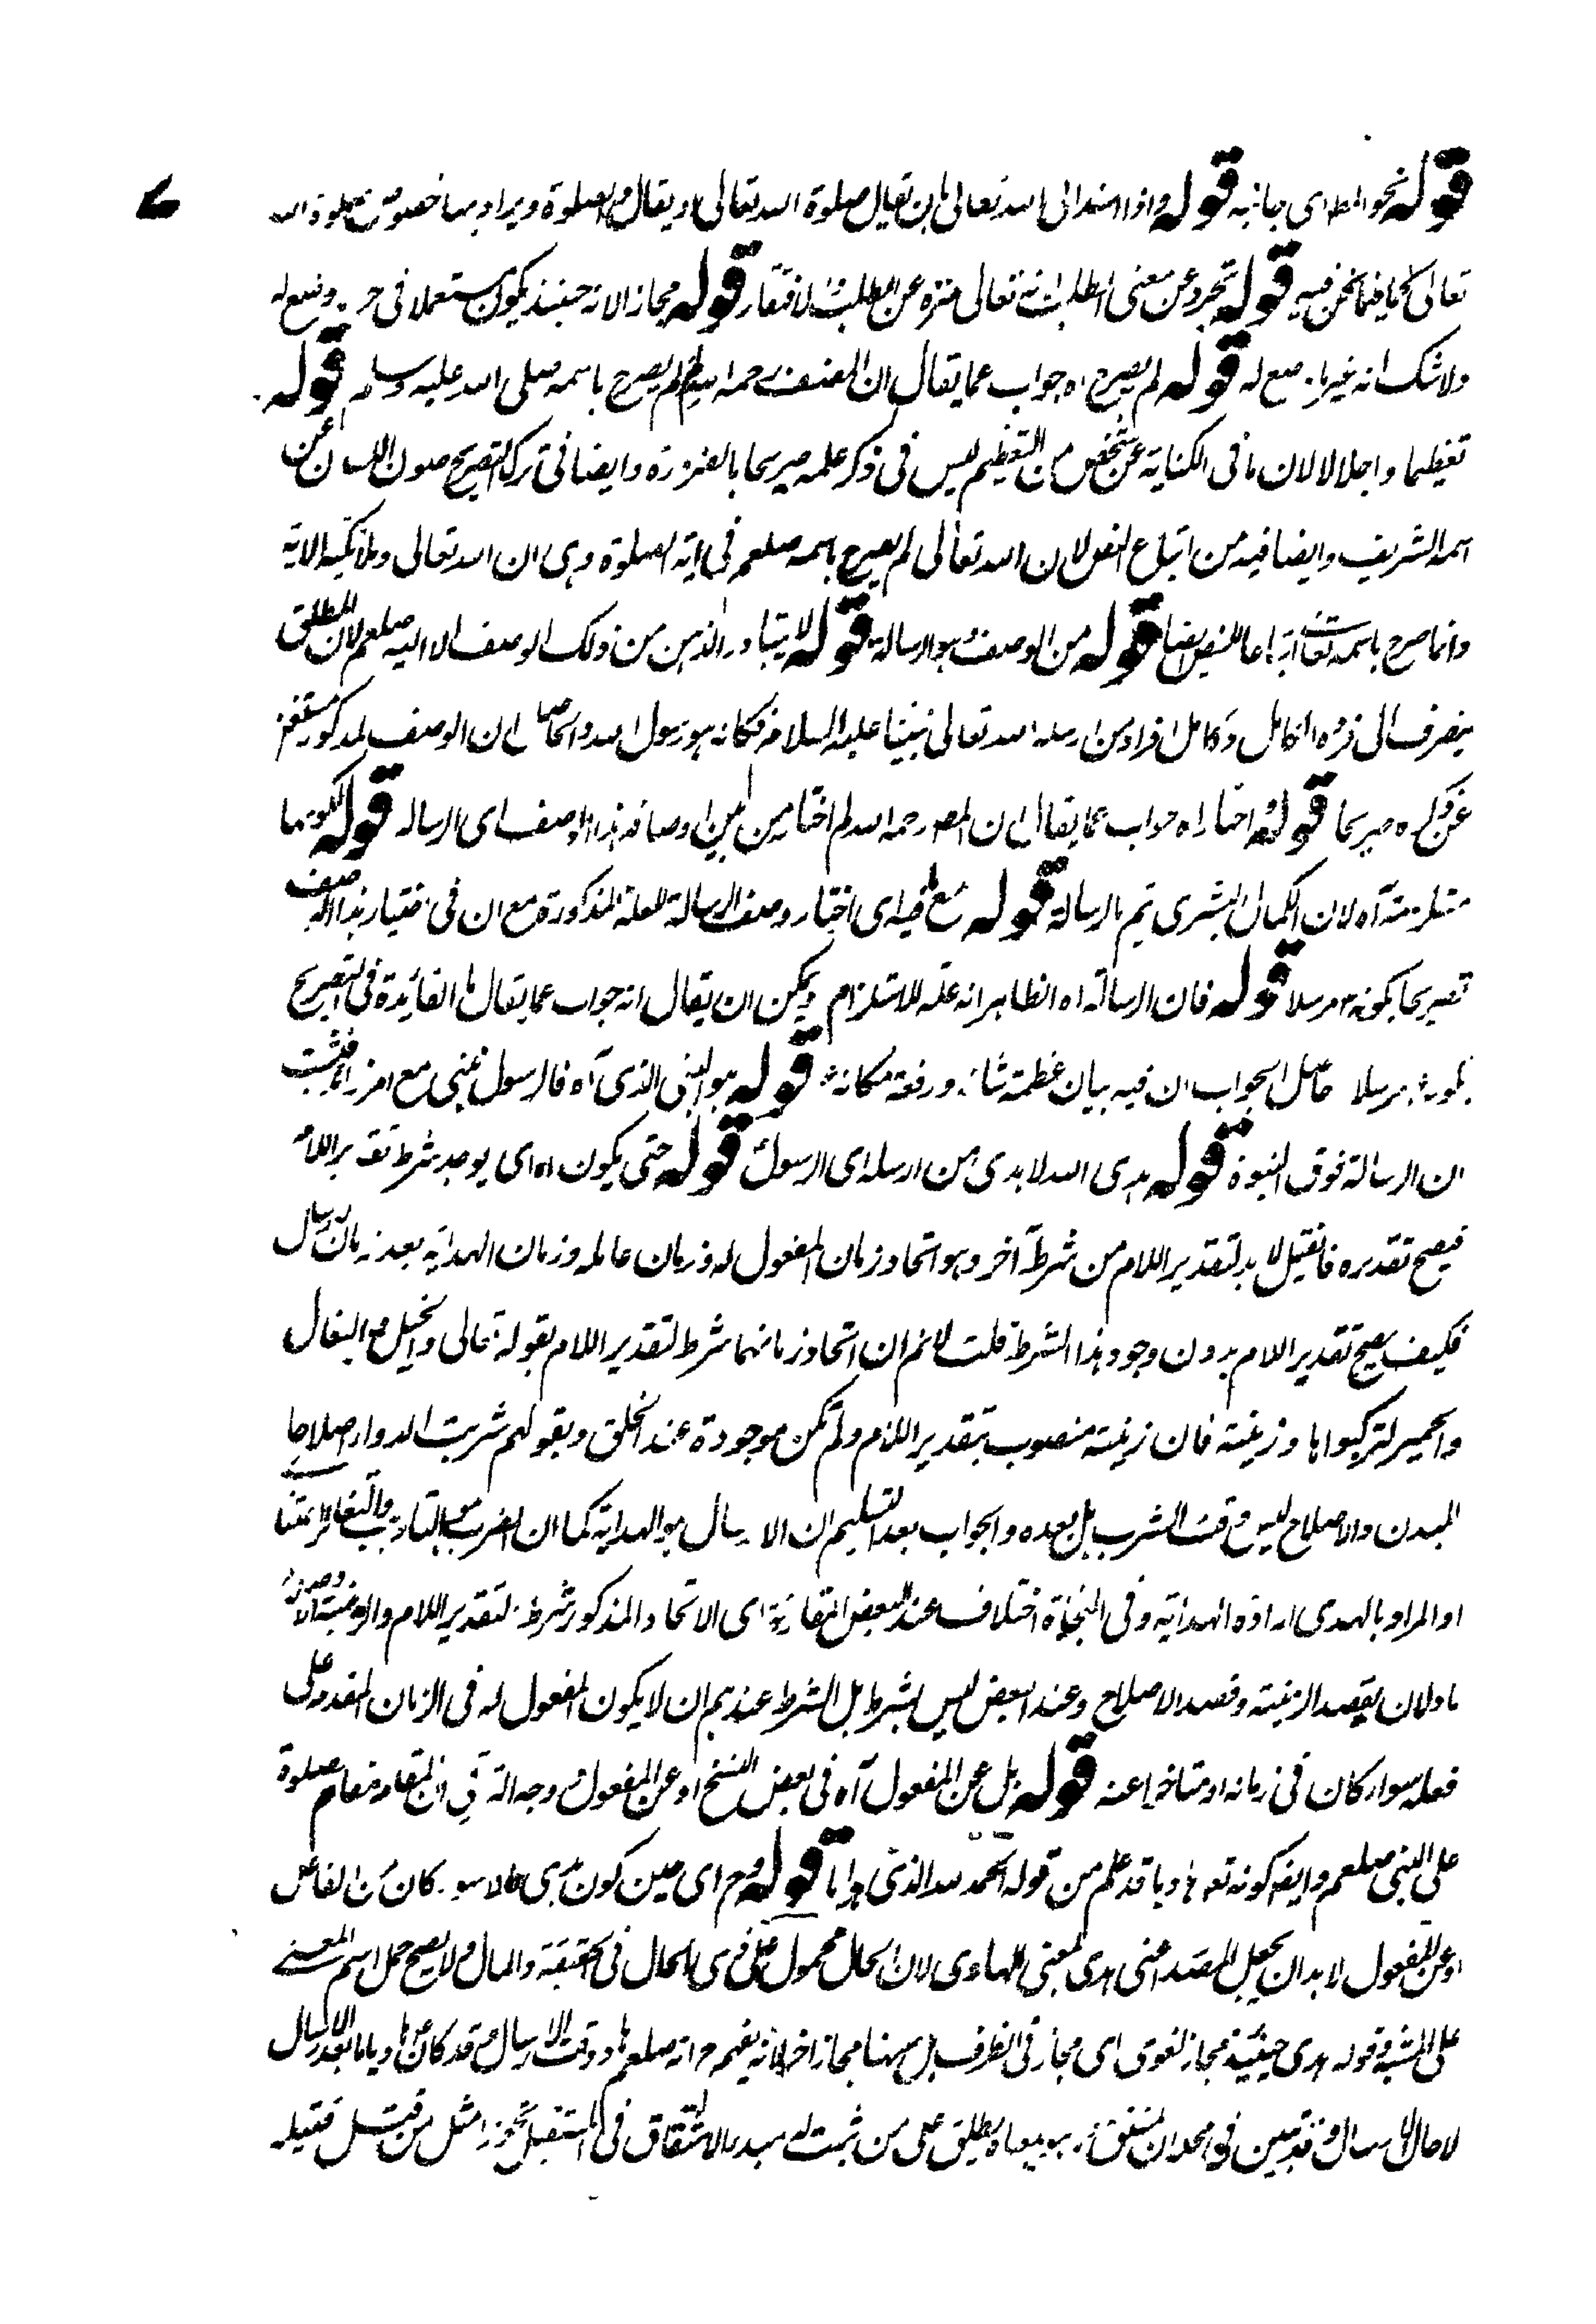 قوله نحو المط اى جانبه قوله واذا اسند الى الله تعالى بان يقال صلوة الله تعالى او يقال الصلوة ويراد بها خصوص صلوة الله
تعالى كما فيما نحن فيه قوله تجرد عن معنى الطلب لانه تعالى منزه عن الطلب لافتقار قوله مجازا لانه حينئذ يكون مستعملا فى جزء وضع له
ولا شك انه غير ما وضع له قوله لم يصرح اه جواب عما يقال ان المصنف رحمه الله لم لم يصرح باسمه صلى الله عليه وسلم قوله
تعظيما واجلالا لان ما فى الكناية عن شخص من التعظيم ليس فى ذكر علمه صريحا بالضرورة وايضا فى ترك التصريح صون اللسان عن
اسمه الشريف وايضا فيه من اتباع النص لان الله تعالى لم يصرح باسمه صلعم فى اية الصلوة وهى ان الله تعالى وملائكته الاية
وانما صرح باسمه تعالى اتباعا للنص ايضا قوله من الوصف هو الرسالة قوله لا يتبادر الذهن من ذلك الوصف الا اليه صلعم لان المطلق
ينصرف الى فرده الكامل وكامل افراد من ارسله الله تعالى نبينا عليه السلام فكانه هو رسول الله والحاصل ان الوصف المذكور مستغن
عن ذكره صريحا قوله اختار اه جواب عما يقال ان المص رحمه الله لم اختار من بين اوصافه هذا الوصف اى الرسالة قوله لكونها
مستلزمة آه لان الكمال البشرى يتم بالرسالة قوله مع ما فيه اى اختيار وصف الرسالة للعلة المذكورة مع ان فى اختيار هذا الوصف
تصريحا بكونه مرسلا قوله فان الرسالة اه الظاهر انه علة للاستلزام ويمكن ان يقال انه جواب عما يقال ما الفائدة فى التصريح
بكونه مرسلا حاصل الجواب ان فيه بيان عظمة شانه ورفعة مكانه قوله هو النبى الذى آه فالرسول نبى مع امر زائد فثبت
ان الرسالة فوق النبوة قوله هدى الله لا هدى من ارسله اى الرسول قوله حتى يكون اه اى يوجد شرط تقدير اللام
فيصح تقديره فان قيل لا بد لتقدير اللام من شرط آخر وهو اتحاد زمان المفعول له وزمان عامله وزمان الهداية بعد زمان الارسال
فكيف يصح تقدير اللام بدون وجود هذا الشرط قلت لا نم ان اتحاد زمانهما شرط لتقدير اللام لقوله تعالى والخيل والبغال
والحمير لتركبوها وزينة فان زينة منصوب بتقدير اللام ولم تكن موجودة عند الخلق وبقولهم شربت الدواء اصلاحا
للبدن والاصلاح ليس وقت الشرب بل بعده والجواب بعد التسليم ان الارسال هو الهداية كما ان الضرب هو التاديب والتغاير اعتبارا
او المراد بالهدى ارادة الهداية وفى النحاة اختلاف عند البعض المقارنة اى الاتحاد المذكور شرط لتقدير اللام والزينة
ماولان بقصد الزينة وقصد الاصلاح وعند البعض ليس بشرط بل الشرط عندهم ان لا يكون المفعول له فى الزمان المقدم على
فعله سواء كان فى زمانه او متاخرا عنه قوله بل عن المفعول آه فى بعض النسخ او عن المفعول وجه الترقى ان المقام مقام صلوة
على النبى صلعم وايضا كونه تعالى هاديا قد علم من قوله الحمد لله الذى هدانا قوله وح اى حين كون هدى حالا سواء كان عن الفاعل
او عن المفعول لا بد ان يجعل المصدر اعنى هدى بمعنى الهادى لان الحال محمول على ذى الحال فى الحقيقة والمال ولا يصح حمل اسم المعنى
على الشئ وقوله هدى حينئذ مجاز لغوى اى مجاز فى الطرف بل ههنا مجاز اخر لانه يفهم انه صلعم هاد وقت الارسال وقد كان هاديا بعد الارسال
لا حال الارسال وقد تبين فى محله ان المشتق يطلق على من ثبت له مبدء الاشتقاق فى المستقبل تجوزا مثل من قتل قتيلا